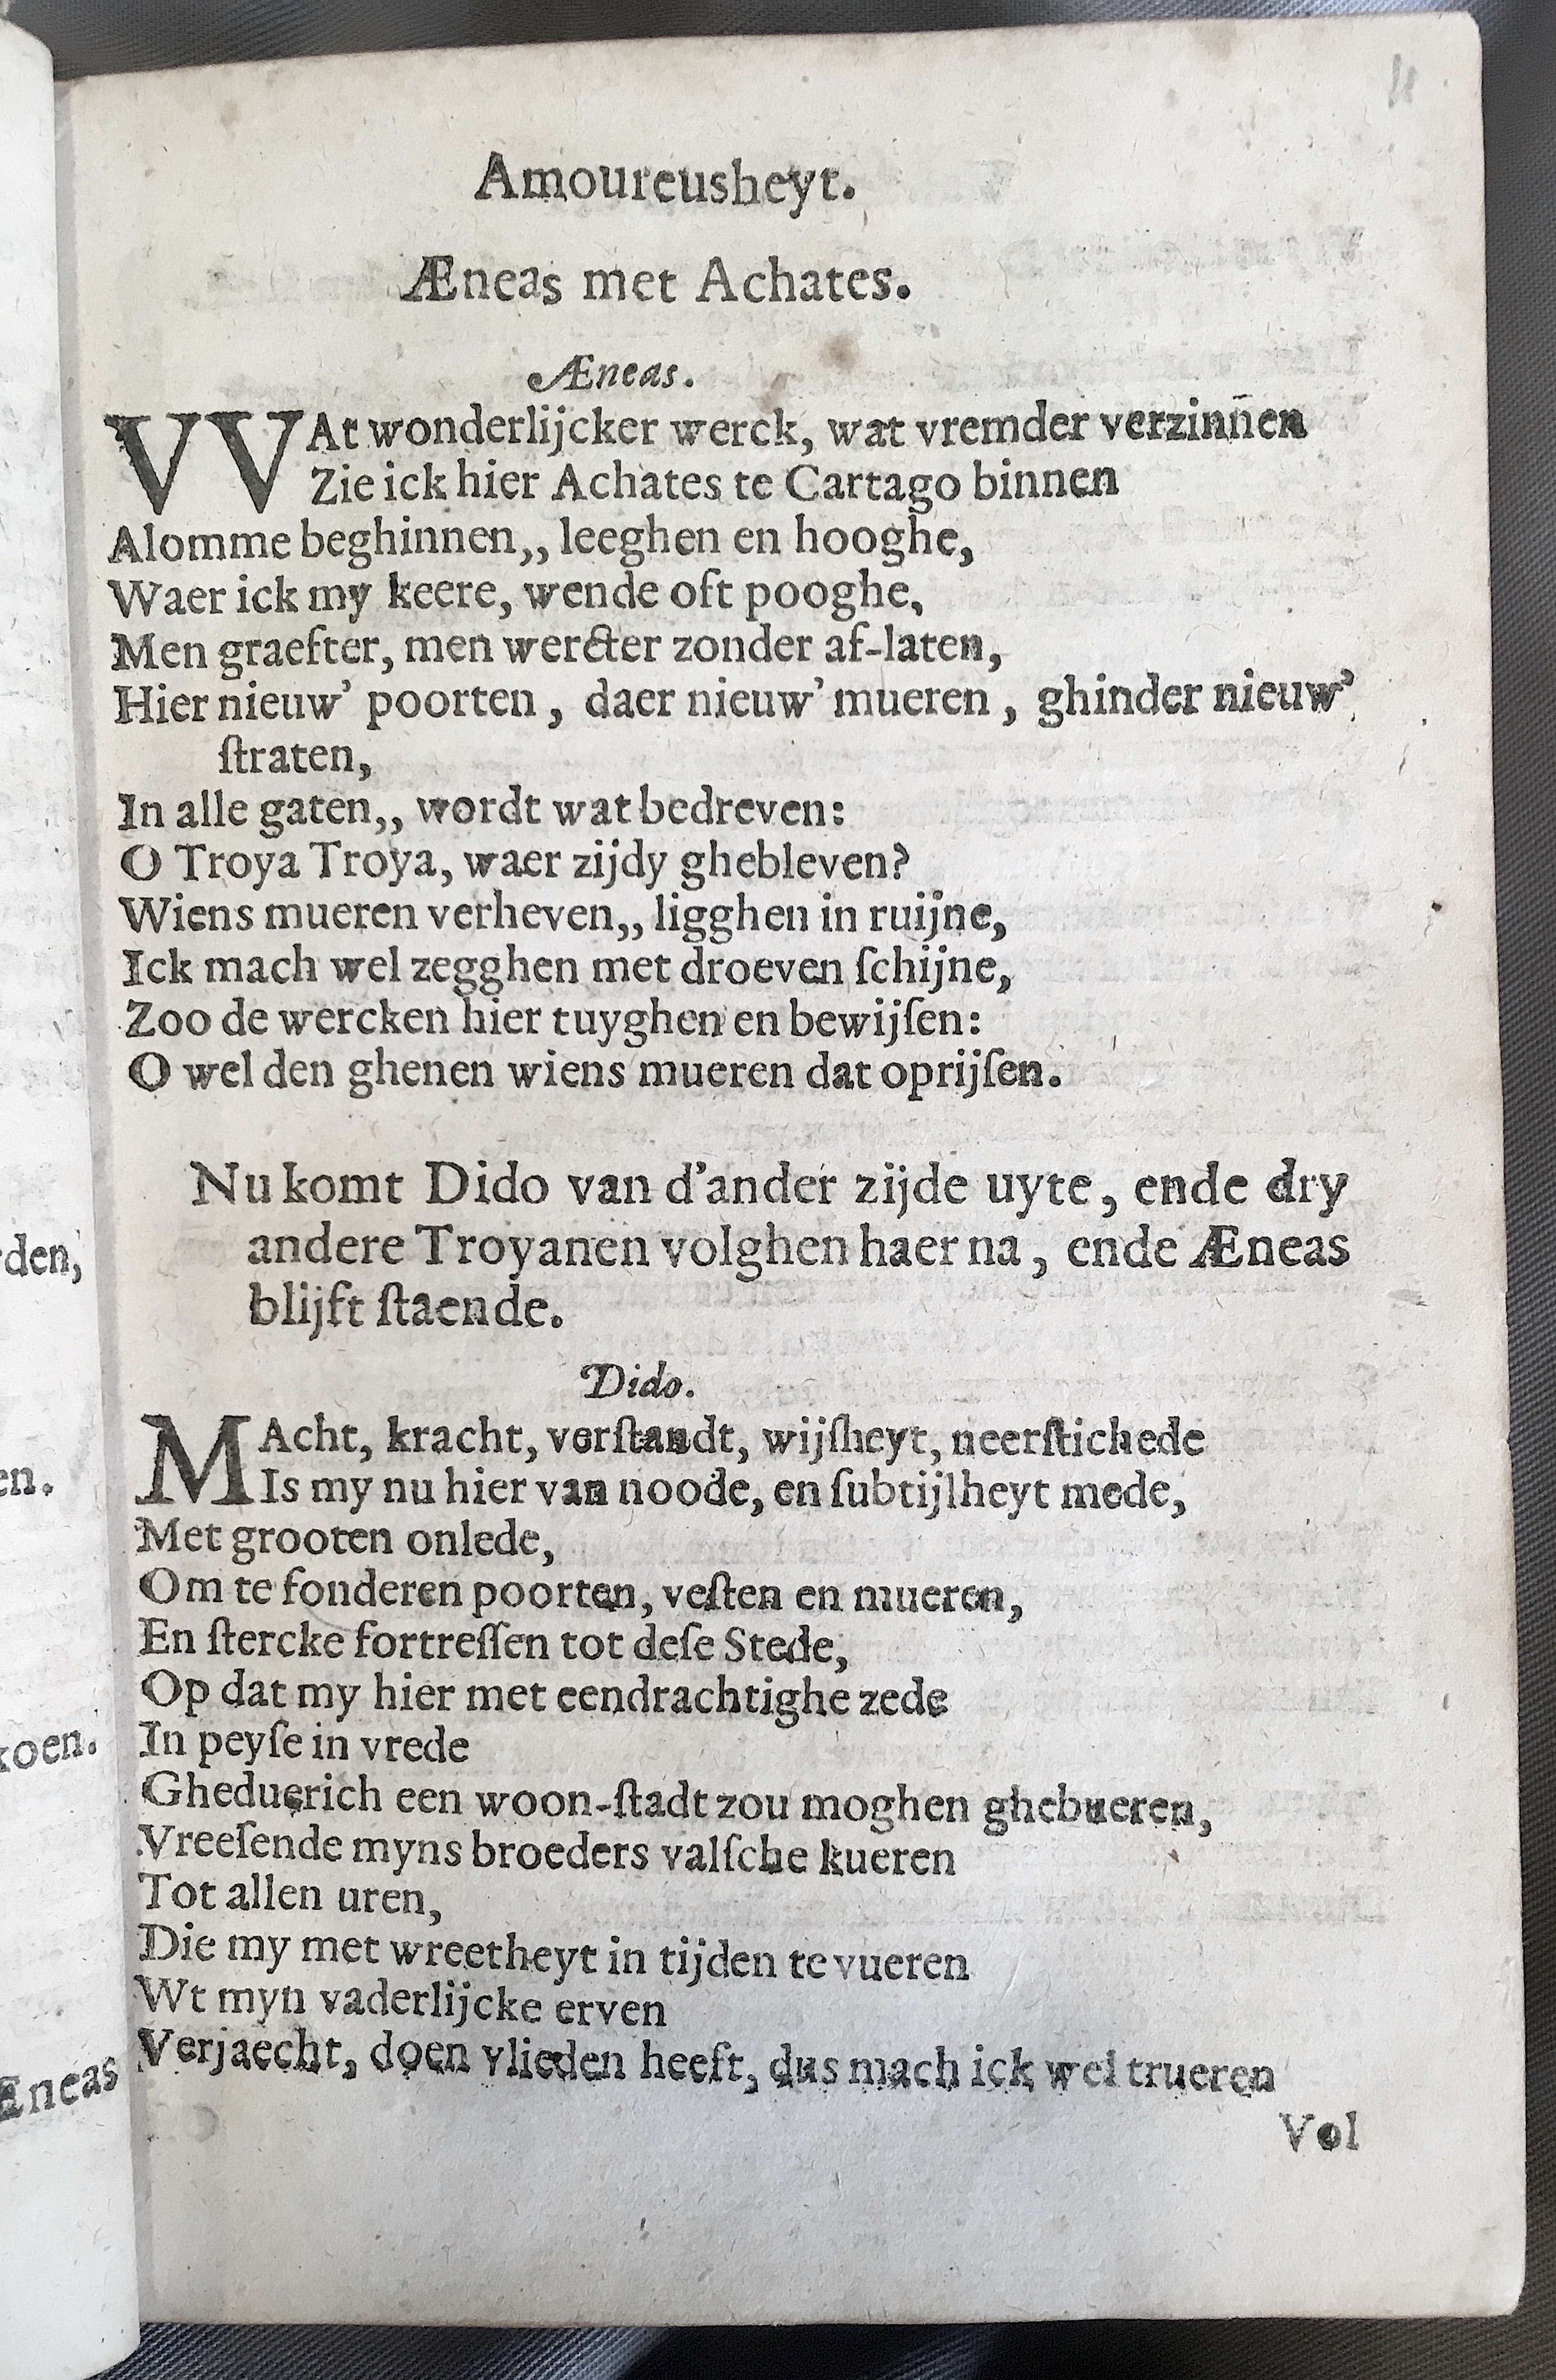 11
Amoureusheyt.
Æneas met Achates.
Æneas.
VVAt wonderlijcker werck, wat vremder verzinñen
Zie ick hier Achates te Cartago binnen
Alomme beghinnen,, leeghen en hooghe,
Waer ick my keere, wende oft pooghe,
Men graefter, men wercter zonder af-laten,
Hier nieuw' poorten, daer nieuw' mueren, ghinder nieuw'
ſtraten,
In alle gaten,, wordt wat bedreven:
O Troya Troya, waer zijdy ghebleven?
Wiens mueren verheven,, ligghen in ruijne,
Ick mach wel zegghen met droeven ſchijne,
Zoo de wercken hier tuyghen en bewijſen:
O wel den ghenen wiens mueren dat oprijſen.
Nu komt Dido van d'ander zijde uyte, ende dry
andere Troyanen volghen haer na, ende Æneas
blijft ſtaende.
Dido.
MAcht, kracht, verſtandt, wijſheyt, neerſtichede
Is my nu hier van noode, en ſubtijlheyt mede,
Met grooten onlede,
Om te fonderen poorten, veſten en mueren,
En ſtercke fortreſſen tot deſe Stede,
Op dat my hier met eendrachtighe zede
In peyſe in vrede
Gheduerich een woon-ſtadt zou moghen ghebueren,
Vreeſende myns broeders valſche kueren
Tot allen uren,
Die my met wreetheyt in tijden te vueren
Wt myn vaderlijcke erven
Verjaecht, doen vlieden heeft, dus mach ick wel trueren
Vol
den,
en.
koen.
Æneas